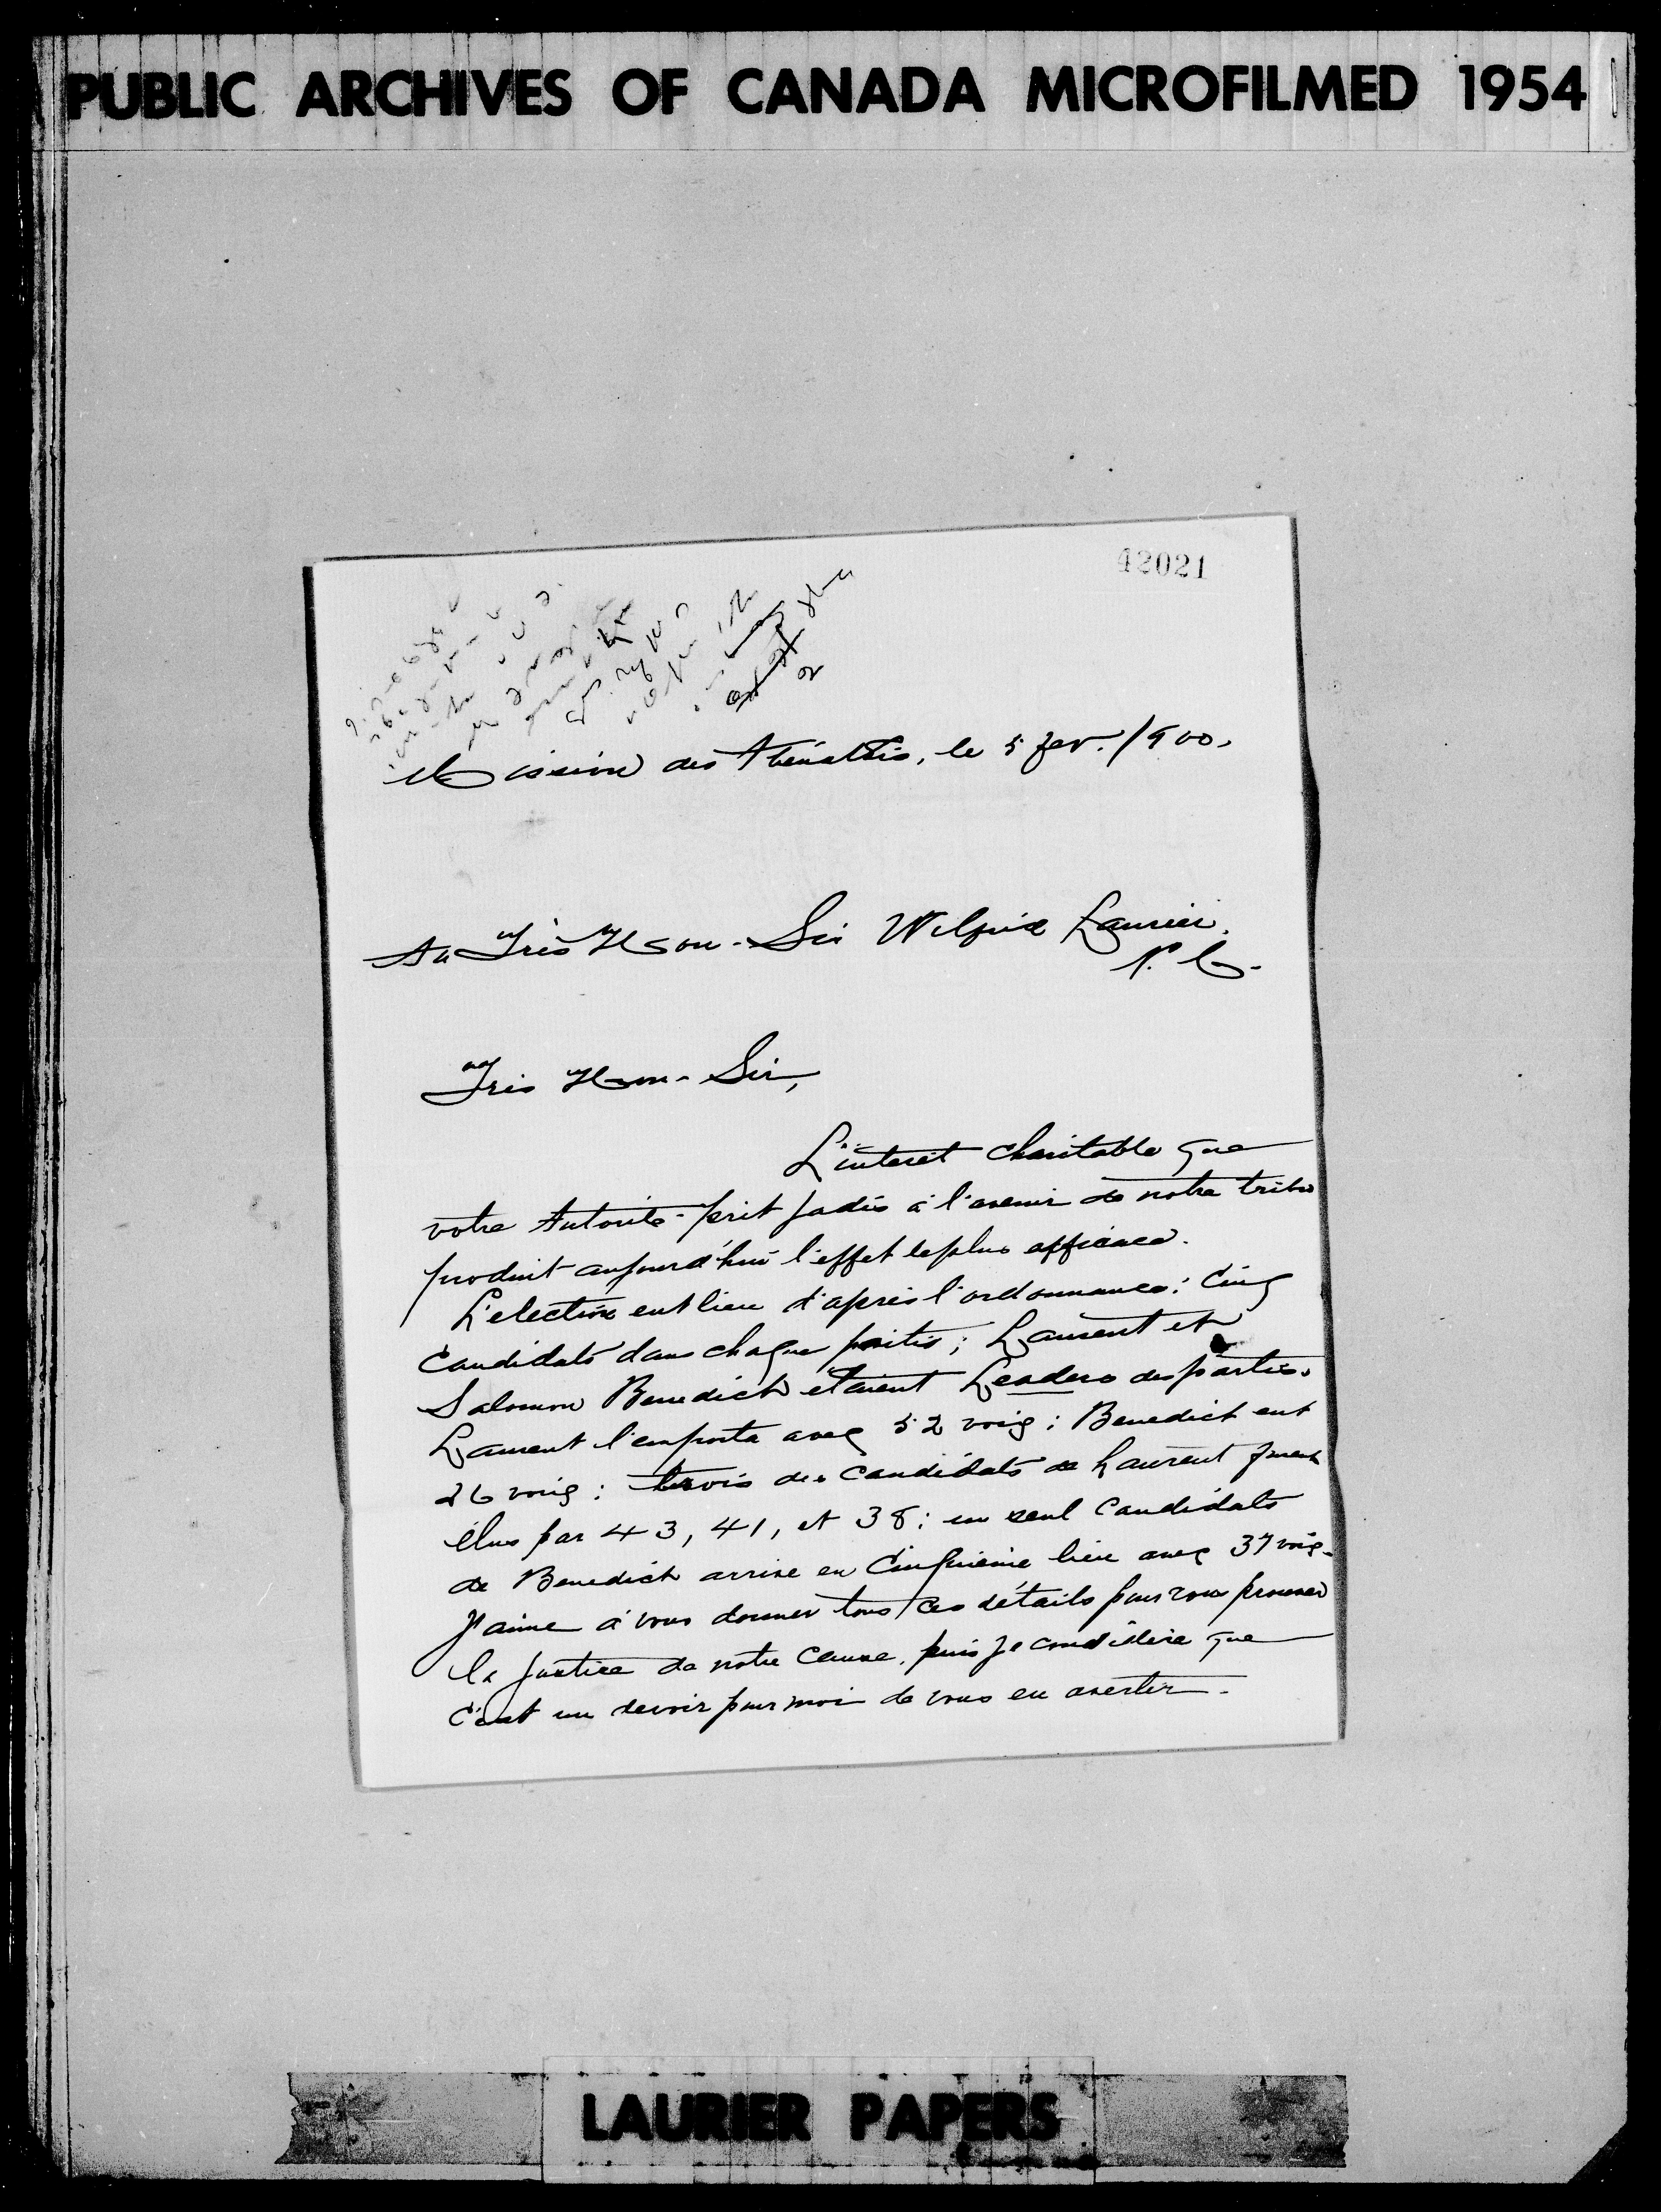 PUBLIC ARCHIVES OF CANADA MICROFILMED 1954
42021
Mission des Abénakis, le 5 fev. 1900.
Au Très Hon. Sir Wilfrid Laurier.
P. C.
Très Hon. Sir,
L'interet charitable que
votre Autorité prit jadis à l'avenir de notre tribu
produit aujourd'hui l'effet le plus efficace.
L'election eut lieu d'après l'ordonnance: Cinq
Candidats dans chaque partis; Laurent et
Salomon Benedict etaient Leaders des partis.
Laurent l'emporta avec 52 voix; Benedict eut
26 voix: trois des Candidats de Laurent furent
élus par 43, 41, et 38; un seul Candidats
de Benedict arrive en Cinquième lieu avec 37 voix.
J'aime à vous donner tous ces détails pour vous prouver
la justice de notre Cause, puis je considère que
C'est un devoir pour moi de vous en avertir.
LAURIER PAPERS